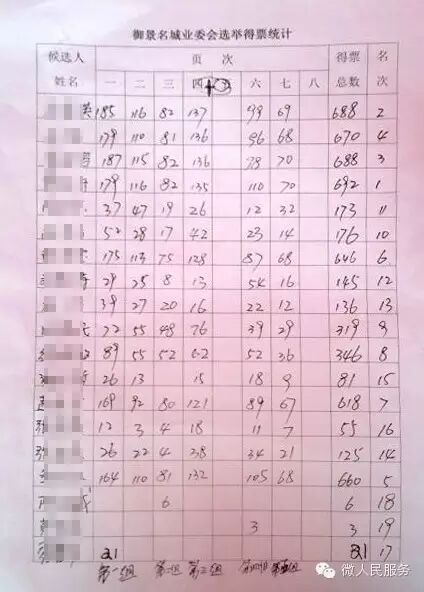 御景名城业委会选举得票统计
候选人 姓名 页次 得票总数 名次
一 二 三 四 六 七 八
英 185 116 82 137 99 69 688 2
179 110 81 136 96 68 670 4
187 115 82 136 98 70 688 3
179 116 82 135 110 70 692 1
37 47 19 26 12 32 173 11
52 28 17 42 23 14 176 10
175 113 75 128 87 68 646 6
29 25 8 13 54 16 145 12
39 27 20 16 22 12 136 13
72 55 48 76 39 29 319 9
89 55 52 62 52 36 346 8
26 13 15 18 9 81 15
169 92 80 121 89 67 618 7
12 3 4 18 11 7 55 16
26 22 4 28 34 21 125 14
164 110 81 132 105 68 660 5
6 6 18
3 3 19
21 21 17
第一组 第二组 第三组 第四组 第五组
微人民服务